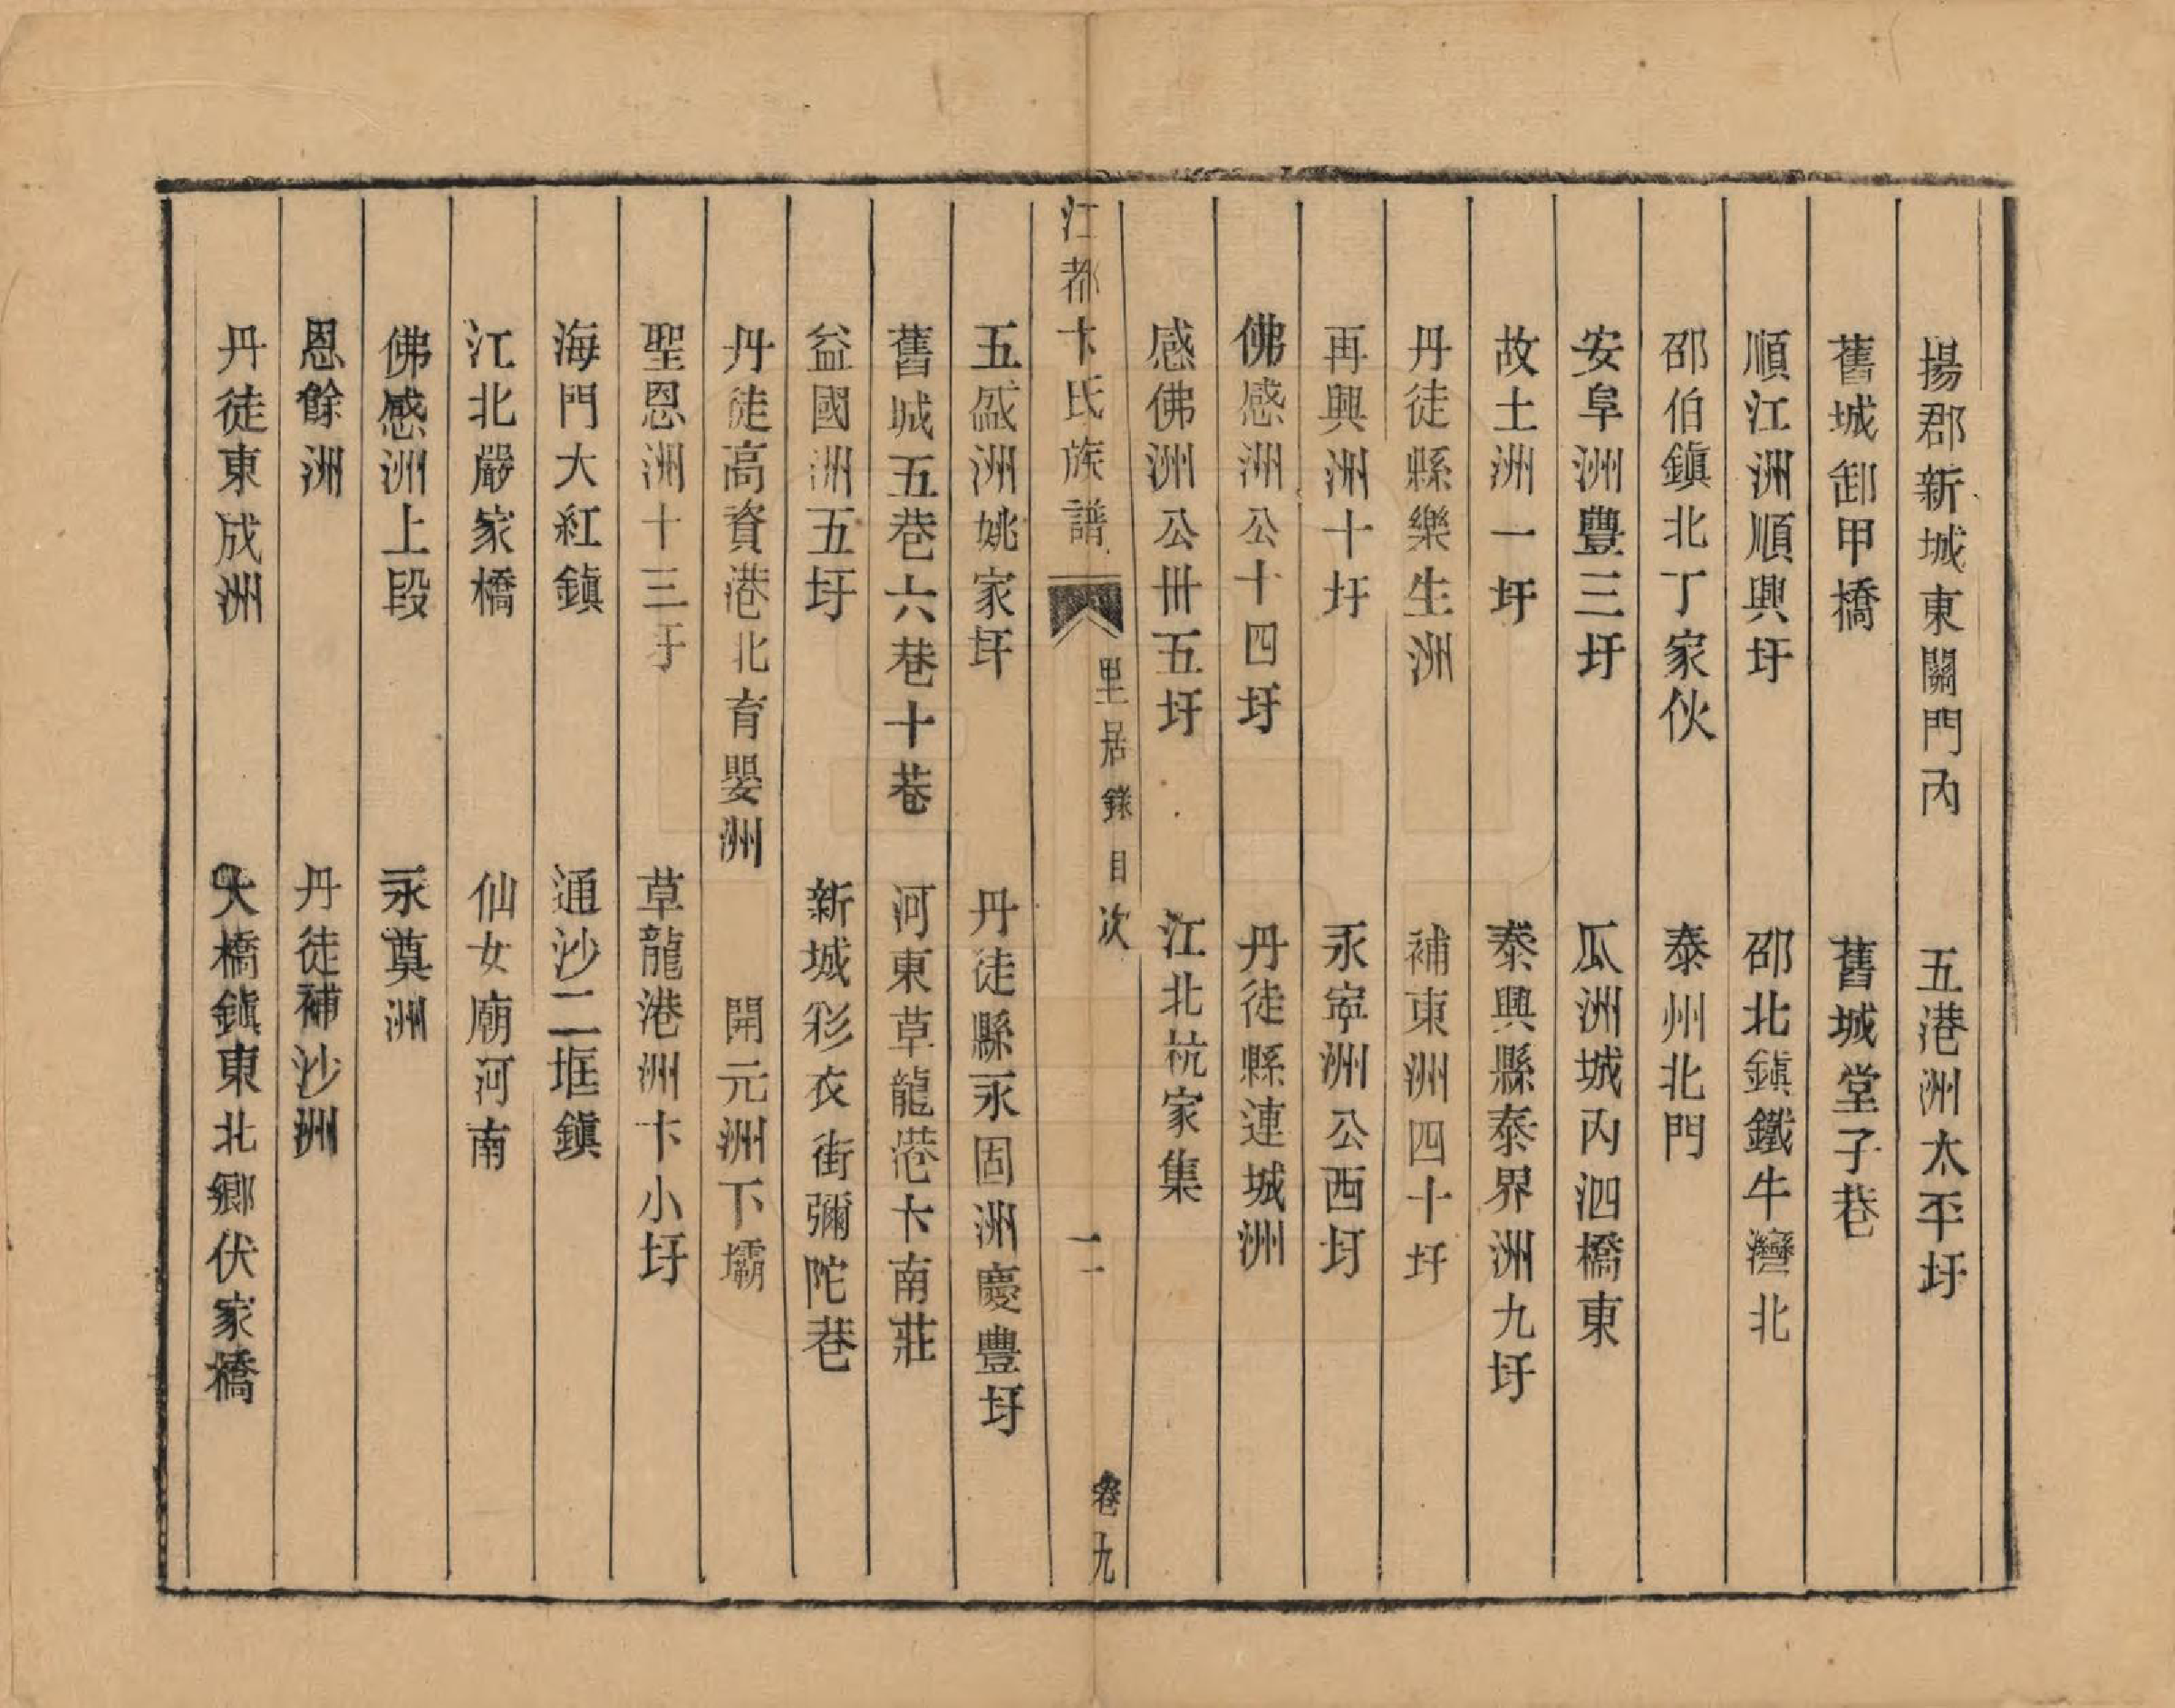 揚郡新城東關門內　五港洲太平圩
舊城卸甲橋　舊城堂子巷
順江洲順興圩　邵北鎮鐵牛灣北
邵伯鎮北丁家伙　泰州北門
安阜洲豐三圩　瓜洲城內泗橋東
故土洲一圩　泰興縣泰界洲九圩
丹徒縣樂生洲　補東洲四十圩
再興洲十圩　永寧洲公西圩
佛感洲公十四圩　丹徒縣連城洲
感佛洲公卅五圩　江北杭家集
江都卞氏族譜　里居錄目次　二　卷九
五盛洲姚家圩　丹徒縣永固洲慶豐圩
舊城五巷六巷十巷　河東草龍港卞南莊
益國洲五圩　新城彩衣街彌陀巷
丹徒高資港北育嬰洲　開元洲下壩
聖恩洲十三圩　草龍港洲卞小圩
海門大紅鎮　通沙二堐鎮
江北嚴家橋　仙女廟河南
佛感洲上段　永奠洲
恩餘洲　丹徒補沙洲
丹徒東成洲　大橋鎮東北鄉伏家橋